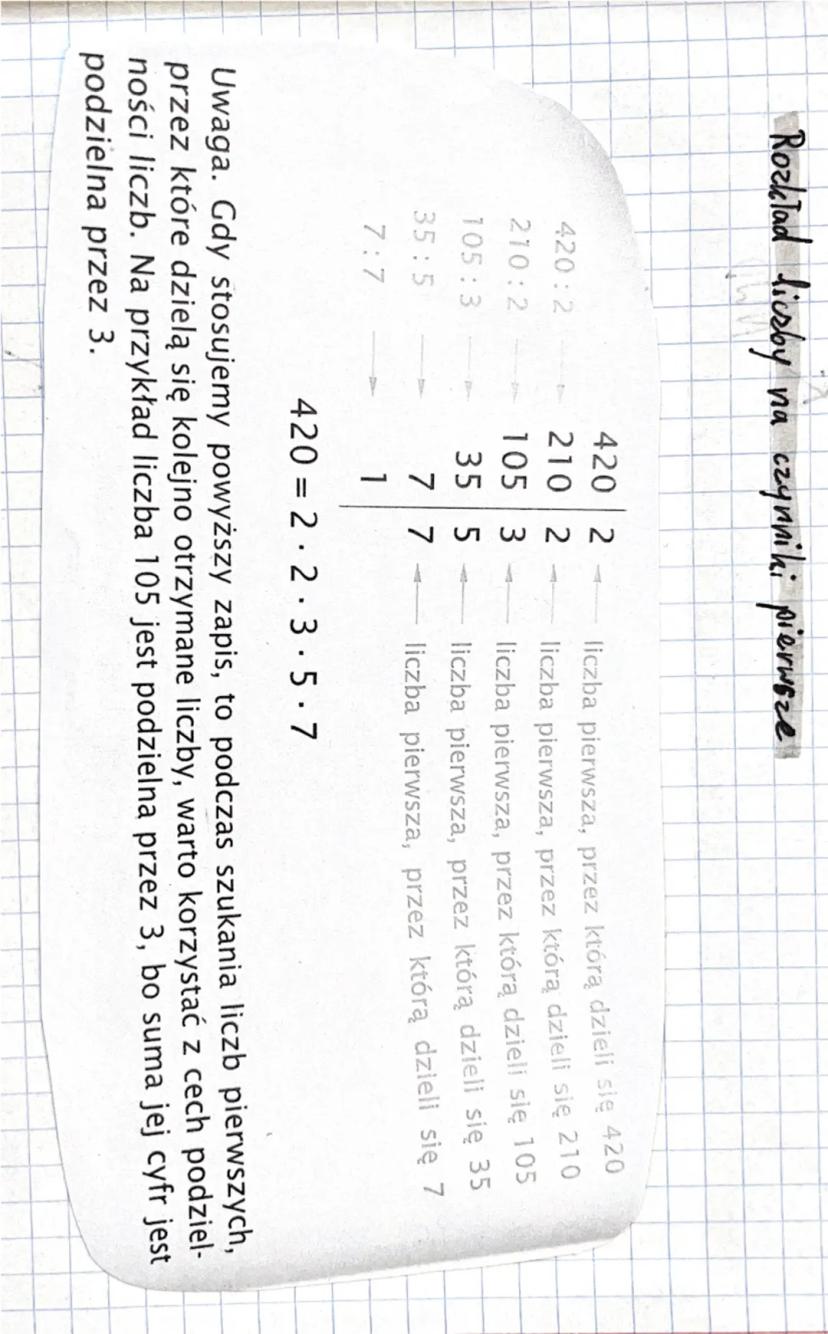 Rozkład liczby na czynniki pierwsze
420 | 2 ← liczba pierwsza, przez którą dzieli się 420
420 : 2 → 210 | 2 ← liczba pierwsza, przez którą dzieli się 210
210 : 2 → 105 | 3 ← liczba pierwsza, przez którą dzieli się 105
105 : 3 → 35 | 5 ← liczba pierwsza, przez którą dzieli się 35
35 : 5 → 7 | 7 ← liczba pierwsza, przez którą dzieli się 7
7 : 7 → 1 |
420 = 2 · 2 · 3 · 5 · 7
Uwaga. Gdy stosujemy powyższy zapis, to podczas szukania liczb pierwszych,
przez które dzielą się kolejno otrzymane liczby, warto korzystać z cech podziel-
ności liczb. Na przykład liczba 105 jest podzielna przez 3, bo suma jej cyfr jest
podzielna przez 3.